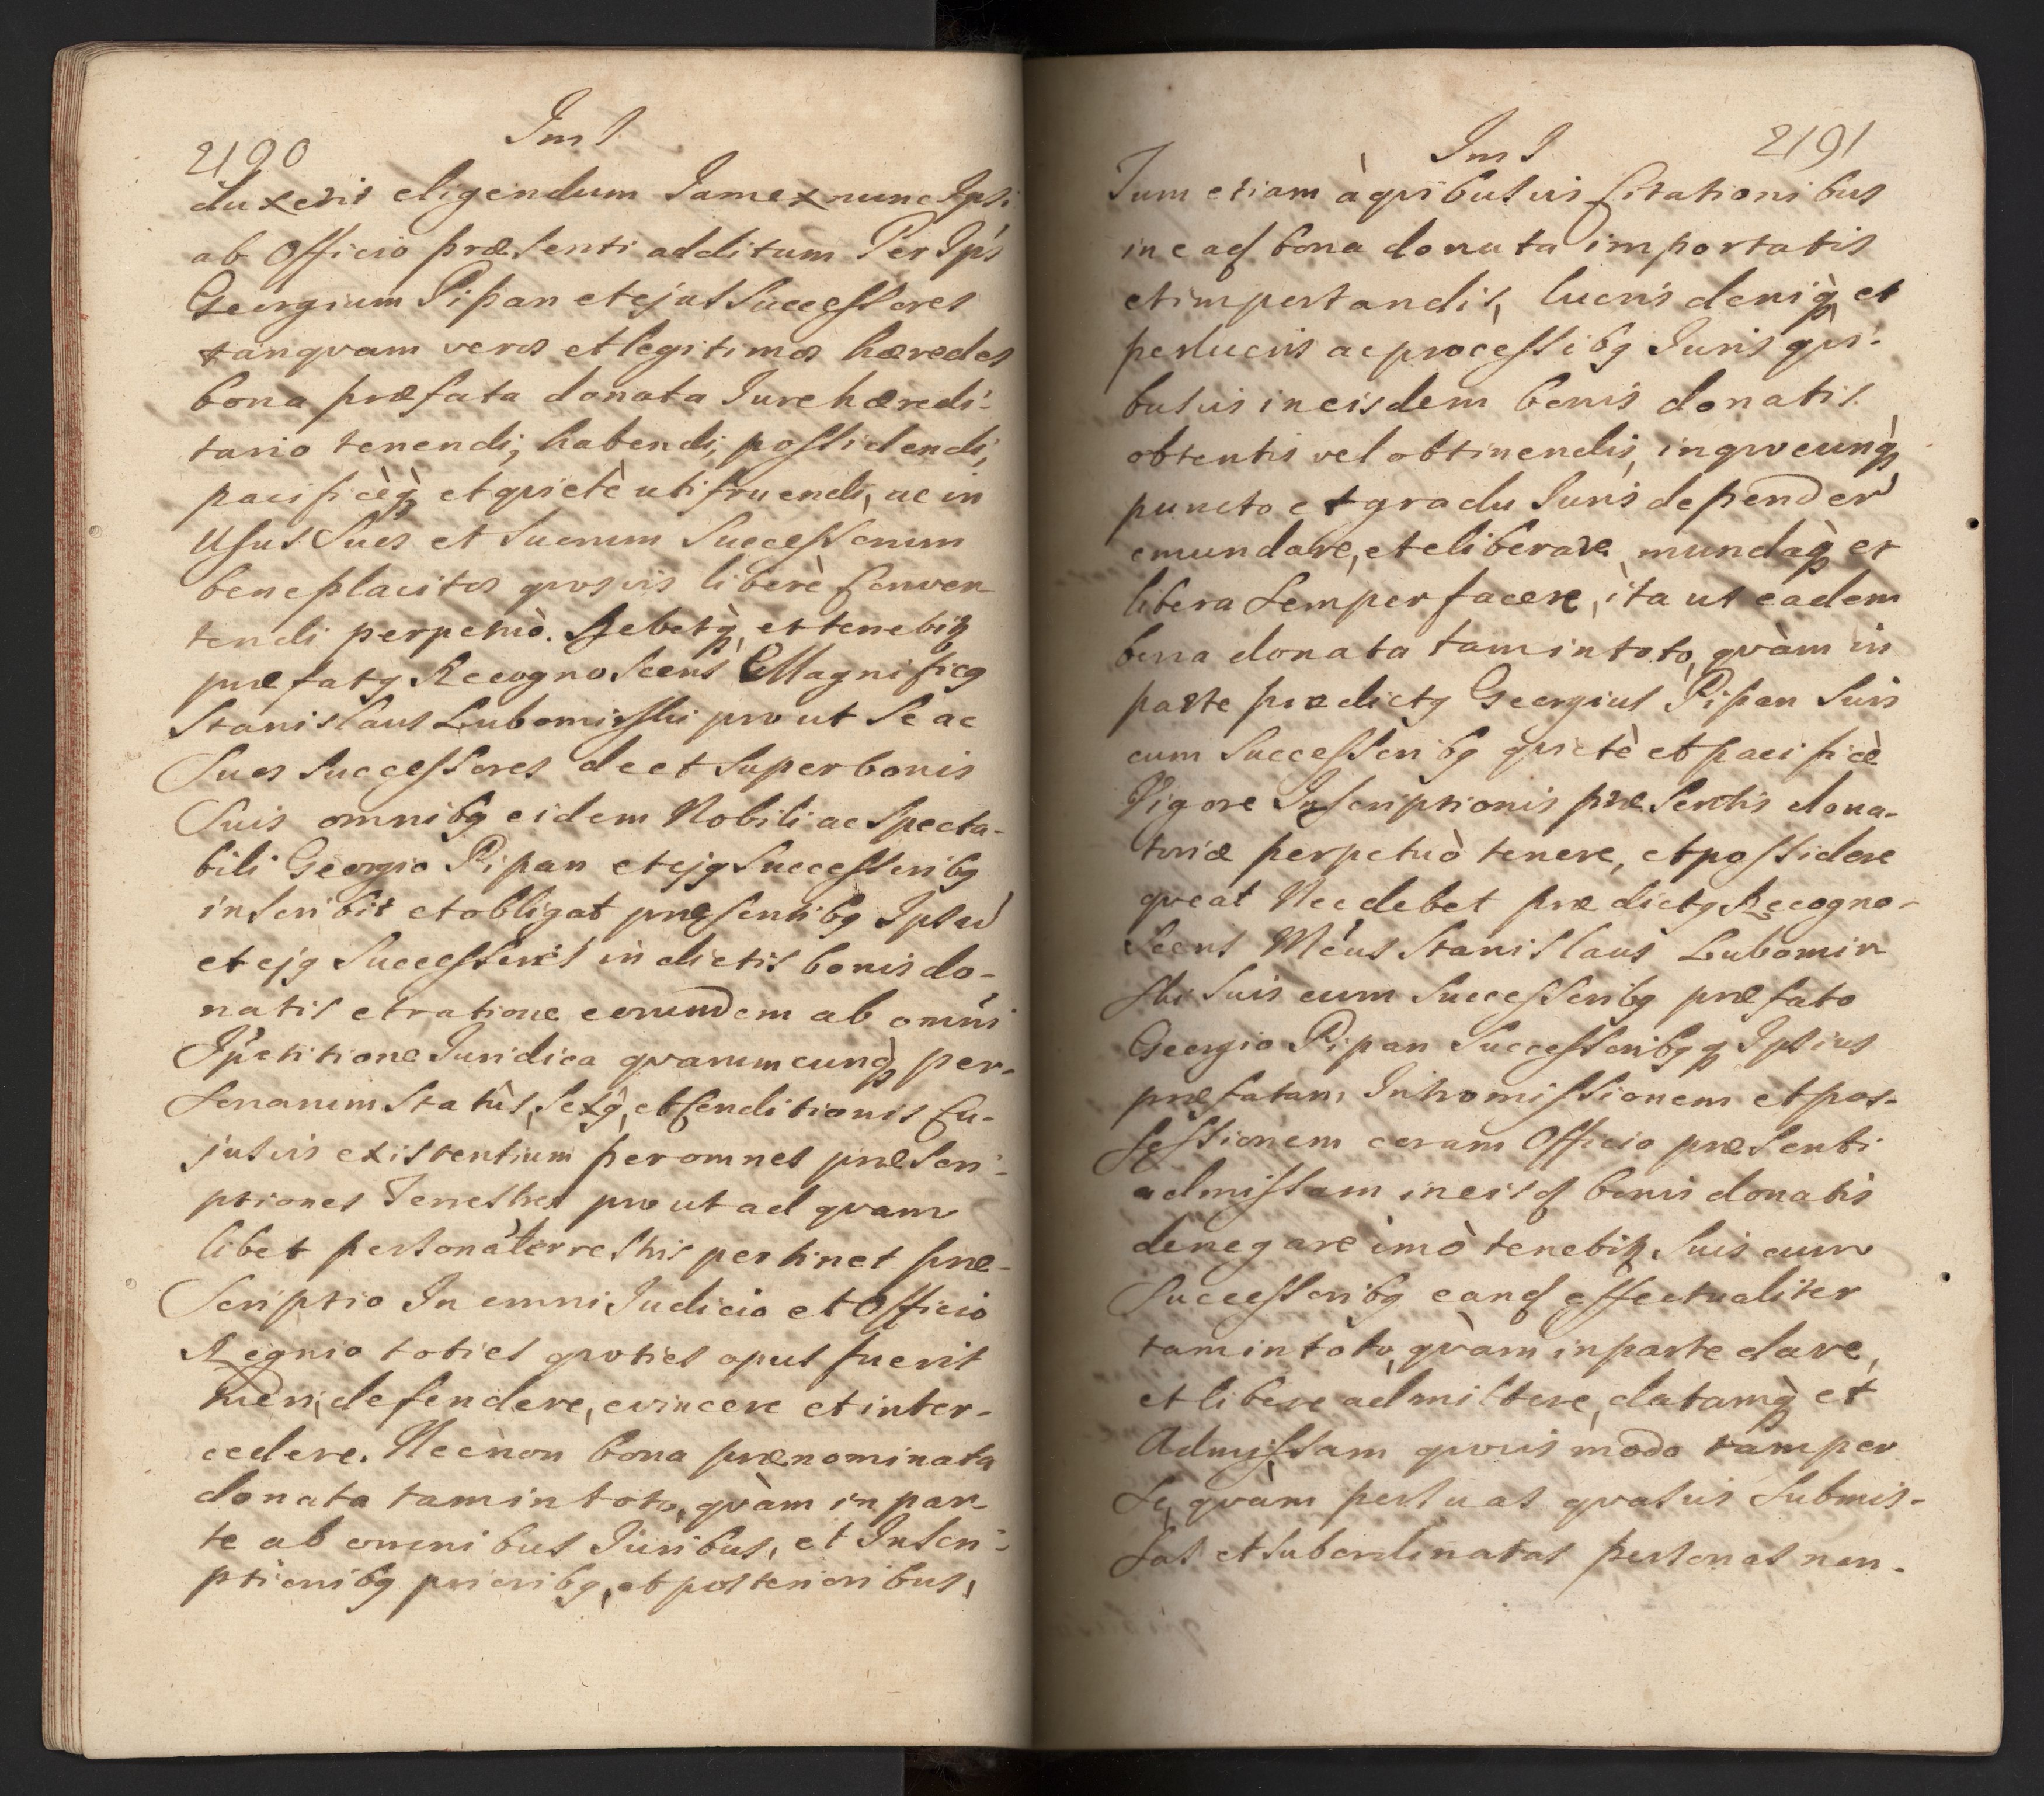 2190
Im I
duxerit eligendum Jam ex nunc Ips:
ab Officio præsenti additum Per Ips
Georgium Pipan et ejus Successores
tanqvam veros et legitimos hæredes
bona præfata donata Jure hæredi-
tario tenendi, habendi, possidendi,
pacificèq; et qvietè uti fruendi, ac in
Usus Suos et Suorum Successorum
beneplacitos qvosvis liberè Conver-
tendi perpetuò. Debetq; et tenebit
præfatg Recognoscens Magnificg
Stanislaus Lubomirski prout Se ac
Suos Successores de et Super bonis
Suis omnibg eidem Nobili ac Specta-
bili Georgio Pipan et ejg Successoribg
inscribit et obligat præsentibg Ipsū
et ejg Successores in dictis bonis do-
natis et ratione eorumdem ab omni
Impetitione Juridica qvarumcunq; per-
sonarum Statùs, Sexq; et Conditionis Cu-
jusvis existentium per omnes præscri-
ptiones Terrestres prout ad qvam
libet personā terrestris pertinet præ-
Scriptio In omni Judicio et Officio
Regnio toties qvoties opus fuerit
tueri, defendere, evincere et inter-
cedere. Necnon bona prænominata
donata tam in toto, qvàm in par-
te ab omnibus Juribus, et Inscri-
ptionibg prioribg, et posterioribus,
Im I
2191
Tum etiam à qvibusvis Citationibus
in eaꝗ bona donata importatis
et importandis, lucris deniq; et
perlucris ac processibg Juris qvi-
busvis in eisdem bonis donatis
obtentis vel obtinendis, in qvocunq;
puncto et gradu Juris dependeñ
emundare, et eliberare, mundaq; et
libera Semper facere, ita ut eadem
bona donata tam in toto, qvàm in
parte prædictg Georgius Pipan Suis
cum Successoribg qvietè et pacificè
Vigore Inscriptionis præsentis dona-
toriæ perpetuò tenere, et possidere
qveat Nec debet prædictg Recogno-
scens Mcus Stanislaus Lubomir
ski Suis cum Successoribg præfato
Georgio Pipan Successoribgq; Ipsius
præfatam Intromissionem et pos-
sessionem coram Officio præsenti
admissam in eisꝗ bonis donatis
denegare imò tenebit Suis cum
Successoribg eanꝗ effectualiter
tam in toto, qvàm in parte dare,
et libere admittere, datamq; et
Admissam qvovis modo tam per
Se, qvàm per suas qvasvis Submis-
sas et subordinatas personas non.